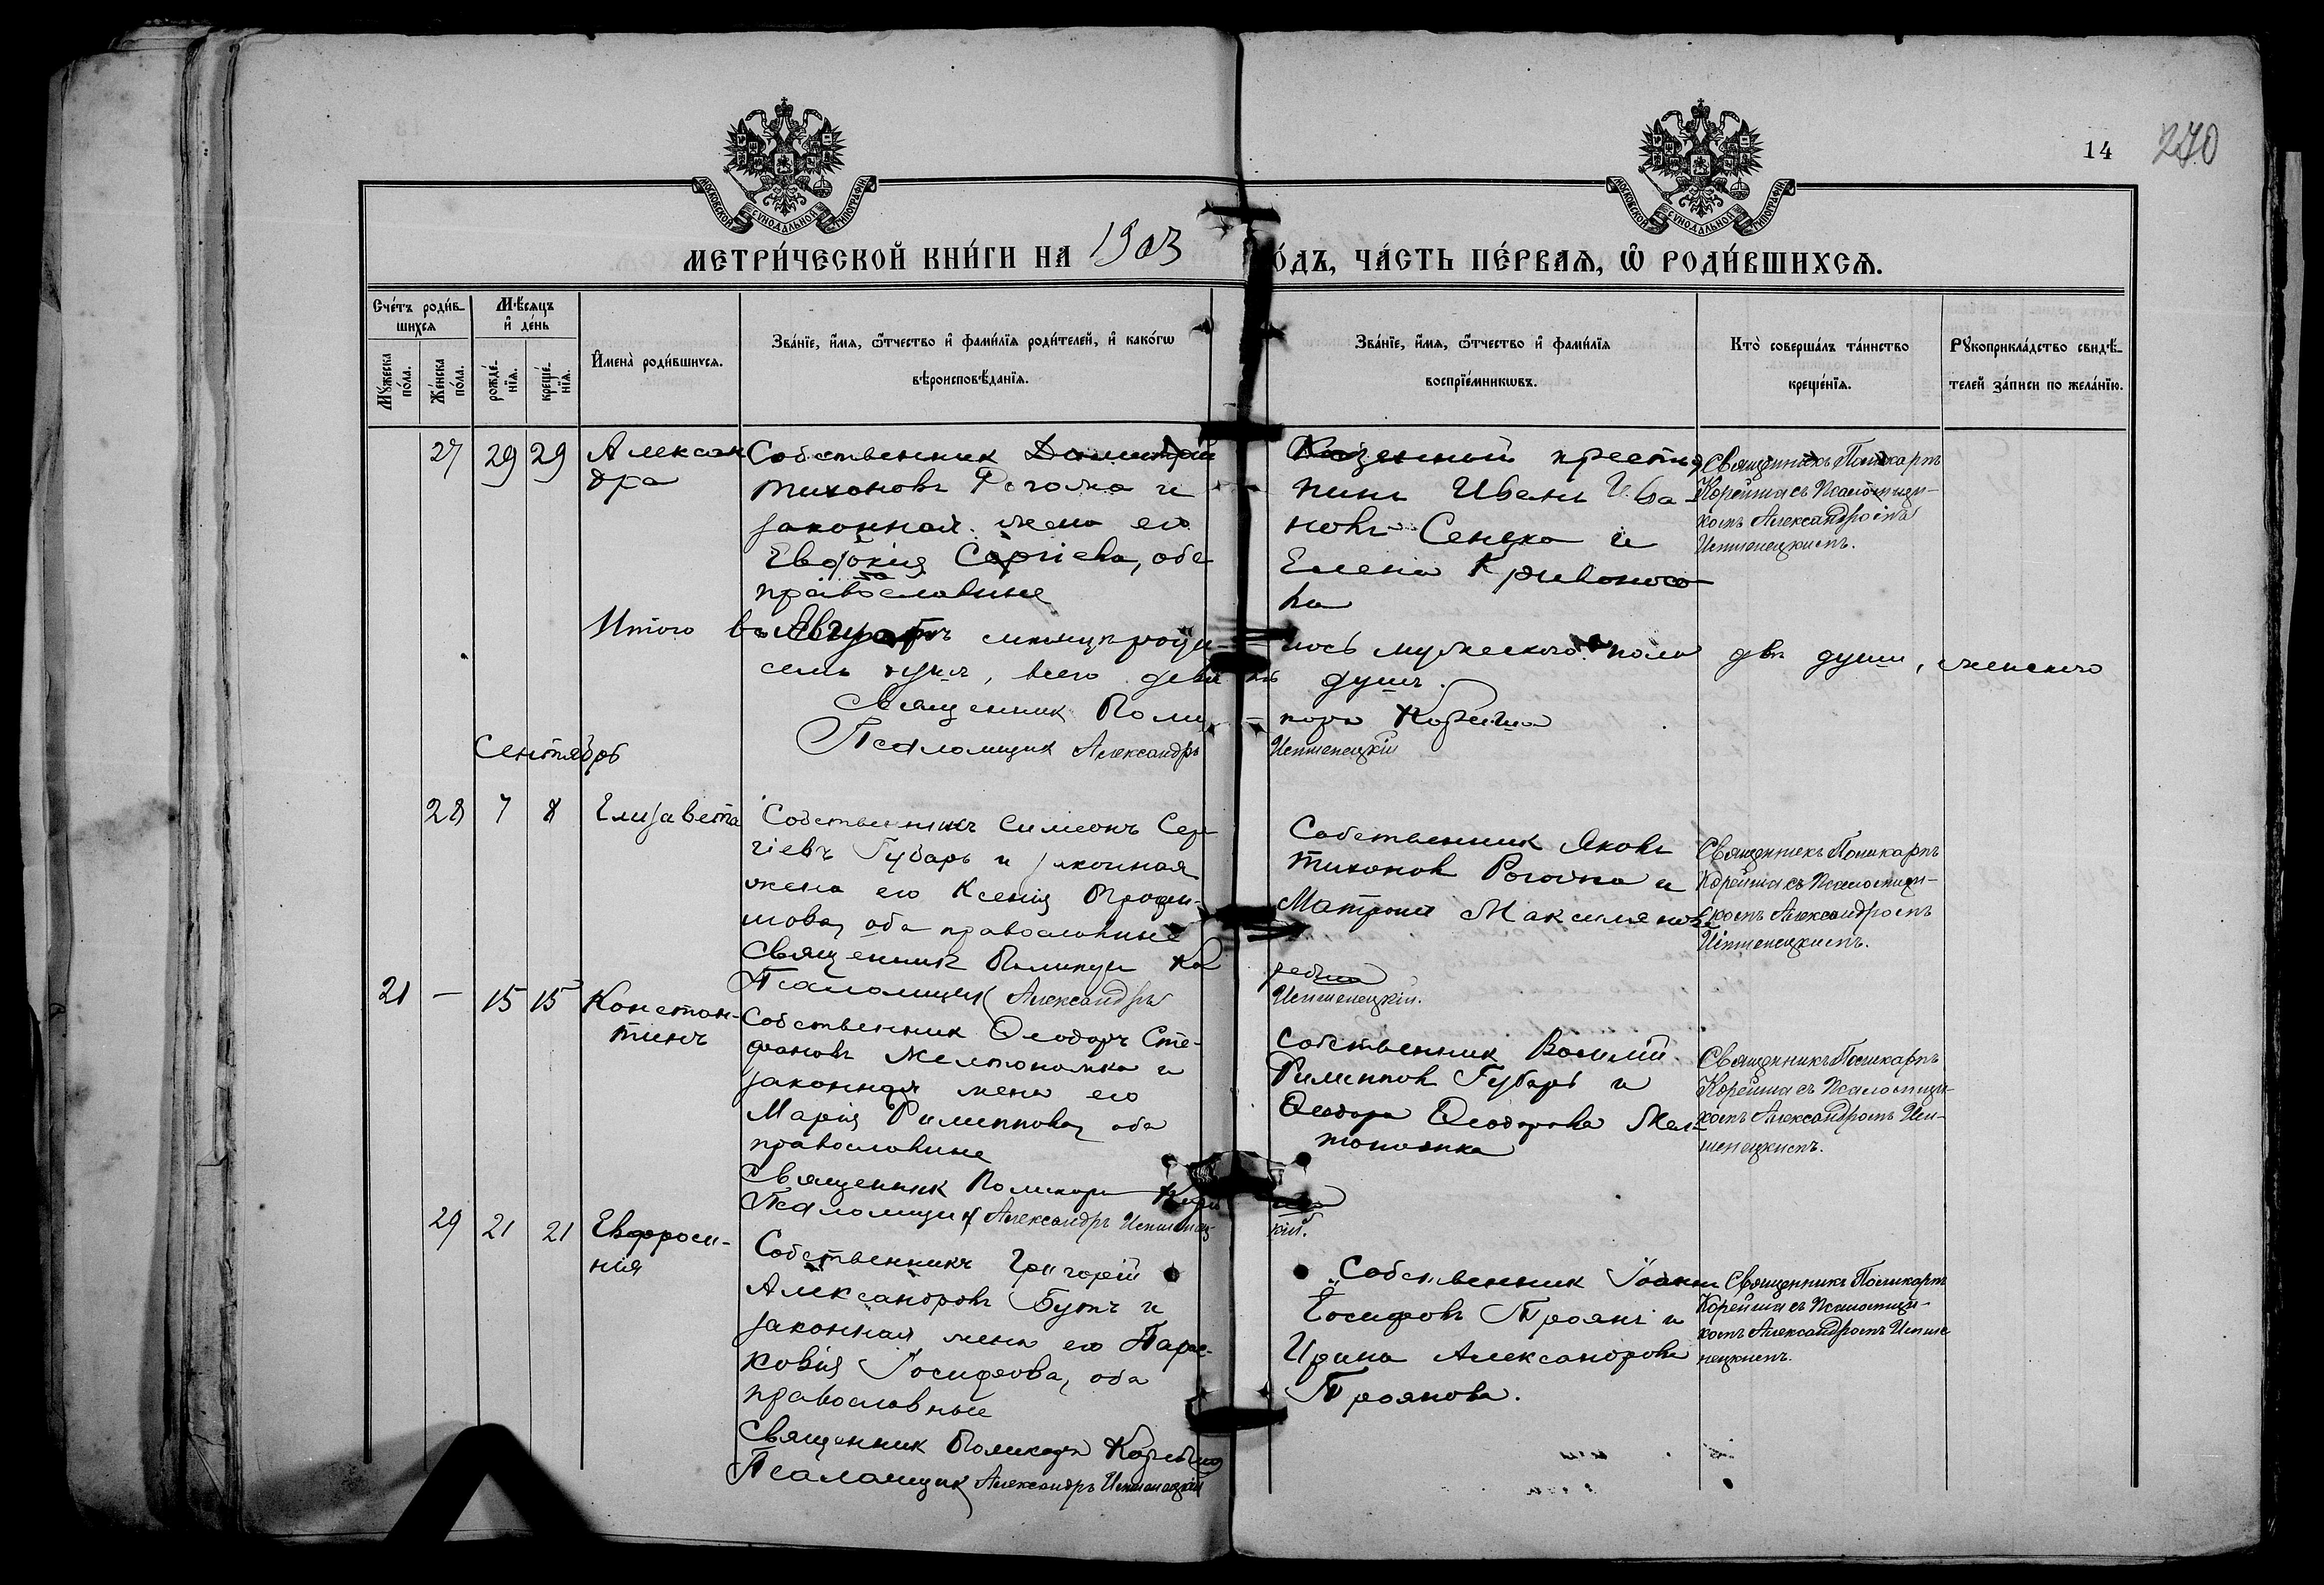 МОСКОВСКОЙ СѴНОДАЛЬНОЙ ТИПОГРАФІИ
МОСКОВСКОЙ СѴНОДАЛЬНОЙ ТИПОГРАФІИ
14 270
МЕТРИ́ЧЕСКОЙ КНИ́ГИ НА 1903 О́ДЪ, ЧА́СТЬ ПЕ́РВАѦ, Ѡ҆ РОДИ́ВШИХСѦ.
Сче́тъ роди́в-
шихся
Мѣ́сяцъ
и҆ де́нь
Мꙋ́жеска по́ла.
Же́нска по́ла.
рожде́-
нїя.
креще́-
нїя.
И҆мена̀ роди́вшихся.
Зва́нїе, и҆́мя, ѻ҆́тчество и҆ фами́лїя роди́телей, и҆ како́гѡ
вѣроисповѣ́данїя.
Зва́нїе, и҆́мя, ѻ҆́тчество и҆ фами́лїя
воспрїе́мникѡвъ.
Кто̀ соверша́лъ та́инство
креще́нїя.
Рꙋкоприкла́дство свидѣ́-
телей за́писи по жела́нїю.
27 29 29 Алексан
дра
Собственник Димитрій
Тихоновъ Рогожа и
законная жена его
Евдокія Сергіева, оба
православные
Казенный крестья
нинъ Иванъ Ива-
новъ Сенека и
Елена Кривоносо
ва
Священникъ Поликарпъ
Корейша съ Псаломщи-
комъ Александромъ
Испшенецкимъ.
Итого въ Августѣ месяцѣ роди-
лось мужеского пола двѣ души, женского
семь душъ, всего девять душъ.
Священник Поликарп Корейша
Псаломщик Александръ Испшенецкій
Сентябрь
28 7 8 Елизавета
Собственникъ Симеонъ Сер-
гіевъ Губарь и законная
жена его Ксенія Проди-
шова, оба православные
Собственник Яковъ
Тихонов Рогожа и
Матрона Максимянова
Священникъ Поликарпъ
Корейша съ Псаломщи-
комъ Александромъ
Испшенецкимъ.
Священник Поликарп Корейша
Псаломщик Александръ Испшенецкій.
21 — 15 15 Констан-
тинъ
Собственник Ѳеодоръ Сте-
фановъ Желтоножка и
законная жена его
Марія Филиппова, оба
православные
Собственник Василій
Филиппов Губарь и
Ѳеодора Ѳеодорова Жел-
тоножка
Священникъ Поликарпъ
Корейша съ Псаломщи-
комъ Александромъ Исп-
шенецкимъ.
Священник Поликарп Корейша
Псаломщик Александръ Испшенец-
кій.
29 21 21 Евфроси-
нія
Собственникъ Григорій
Александровъ Бутъ и
законная жена его Парас-
ковія Іосифова, оба
православные
Собственник Іоаннъ
Іосифовъ Троянъ и
Ирина Александрова
Троянова.
Священникъ Поликарпъ
Корейша съ Псаломщи-
комъ Александромъ Испше
нецкимъ.
Священник Поликарп Корейша
Псаломщик Александръ Испшенецкій